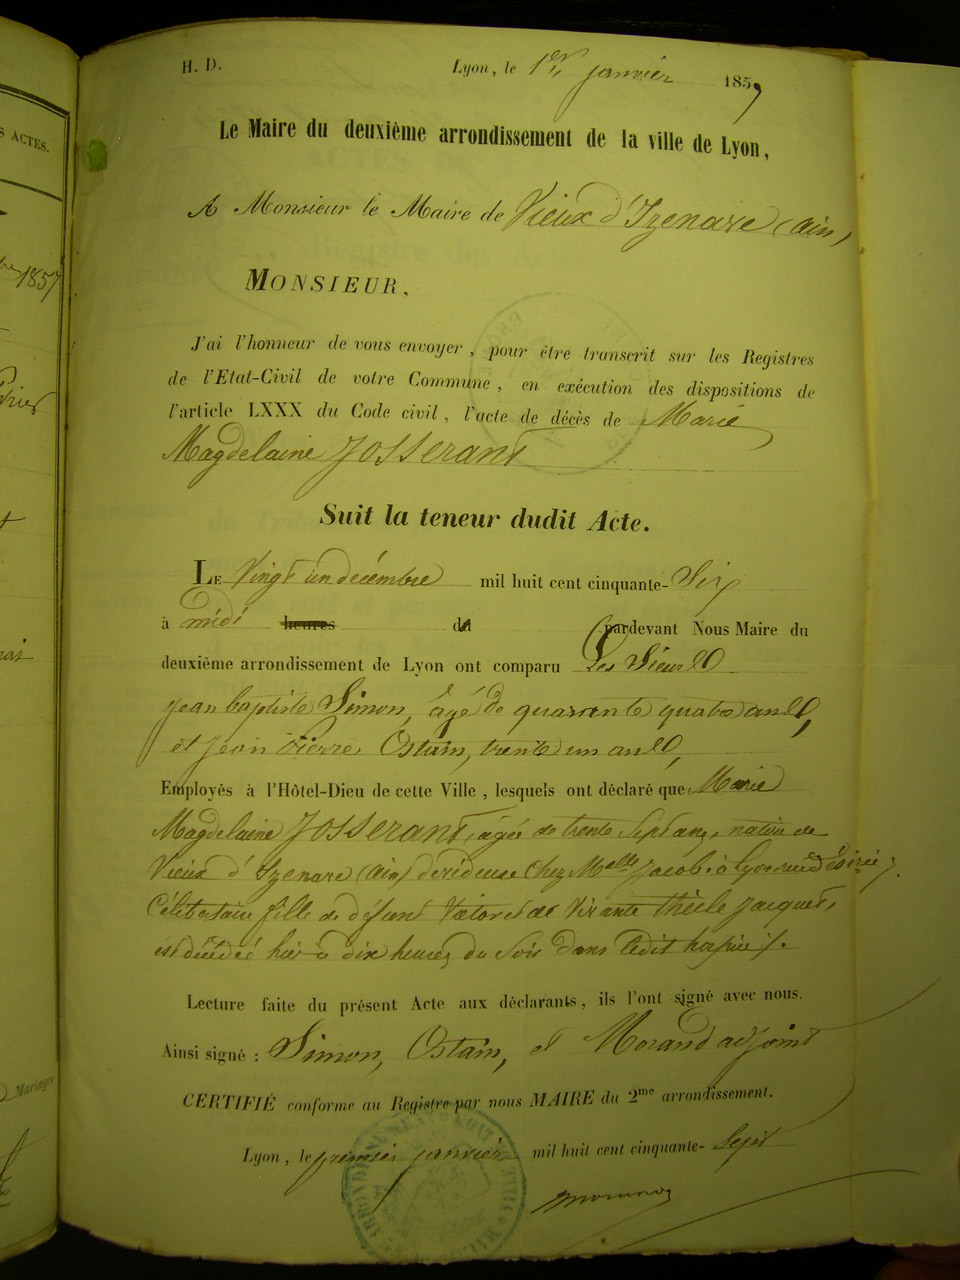 S ACTES.
1857
Mariages
H. D.
Lyon, le 1er janvier 1857
Le Maire du deuxième arrondissement de la ville de Lyon,
A Monsieur le Maire de Vieux d'Izenave (ain)
MONSIEUR,
J'ai l'honneur de vous envoyer, pour être transcrit sur les Registres
de l'Etat-Civil de votre Commune, en exécution des dispositions de
l'article LXXX du Code civil, l'acte de décès de Marie
Magdelaine Josserant
Suit la teneur dudit Acte.
LE Vingt un décembre mil huit cent cinquante-Six
à midi heures du pardevant Nous Maire du
deuxième arrondissement de Lyon ont comparu Les Sieurs
Jean baptiste Simon, âgé de quarante quatre ans,
et Jean Pierre Ostain, trente un ans,
Employés à l'Hôtel-Dieu de cette Ville, lesquels ont déclaré que Marie
Magdelaine Josserant, âgée de trente Sept ans, native de
Vieux d'Izenave (ain) dévideuse chez Melle Jacob à Lyon rue désirée,
Célibataire fille de défunt Victor et de vivante thècle Jacquet,
est décédée hier à dix heures du Soir dans ledit hospice /.
Lecture faite du présent Acte aux déclarants, ils l'ont signé avec nous.
Ainsi signé : Simon, Ostain, et Morand adjoint
CERTIFIÉ conforme au Registre par nous MAIRE du 2me arrondissement.
Lyon, le premier janvier mil huit cent cinquante-Sept